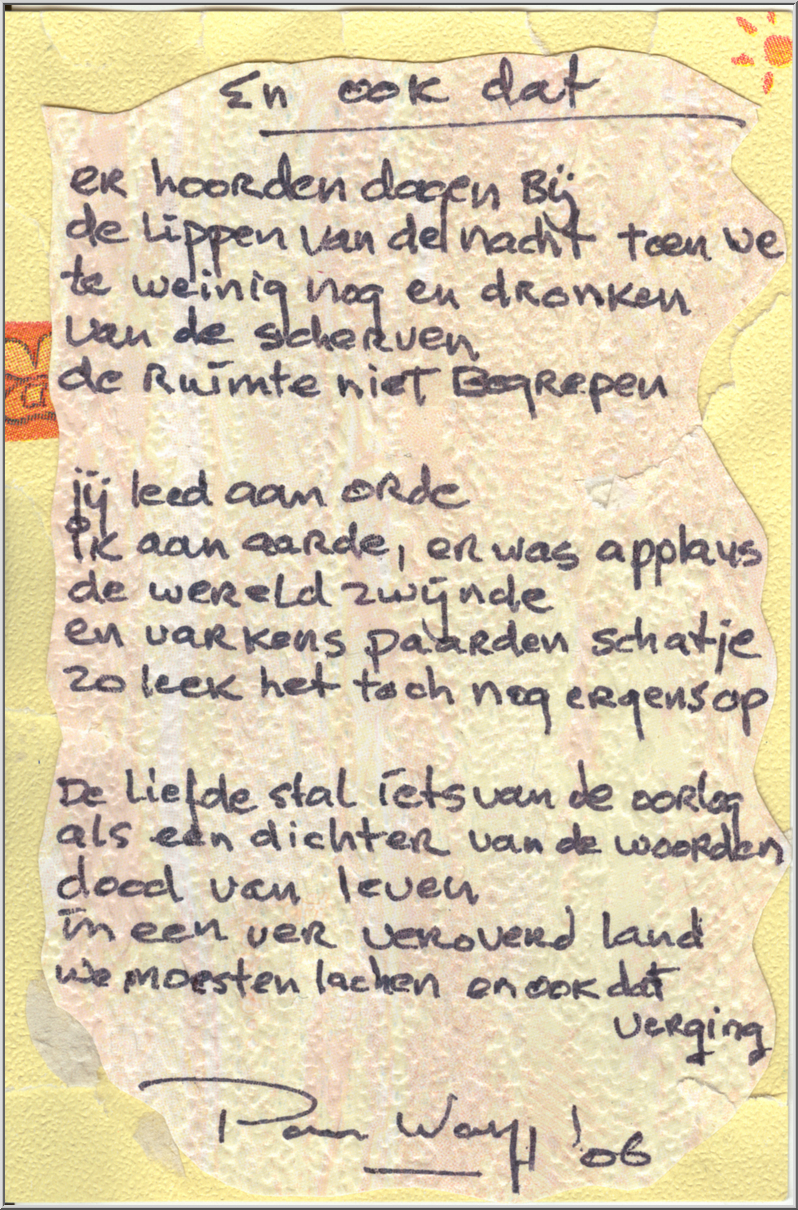 En ook dat
er hoorden dagen Bij
de Lippen van de nacht toen we
te weinig nog en dronken
van de scherven
de Ruimte niet Begrepen
jij leed aan orde
ik aan aarde, er was applaus
de wereld zwijnde
en varkens paarden schatje
zo leek het toch nog ergens op
De Liefde stal iets van de oorlog
als een dichter van de woorden
dood van leven
in een ver veroverd land
we moesten lachen en ook dat
verging
'06